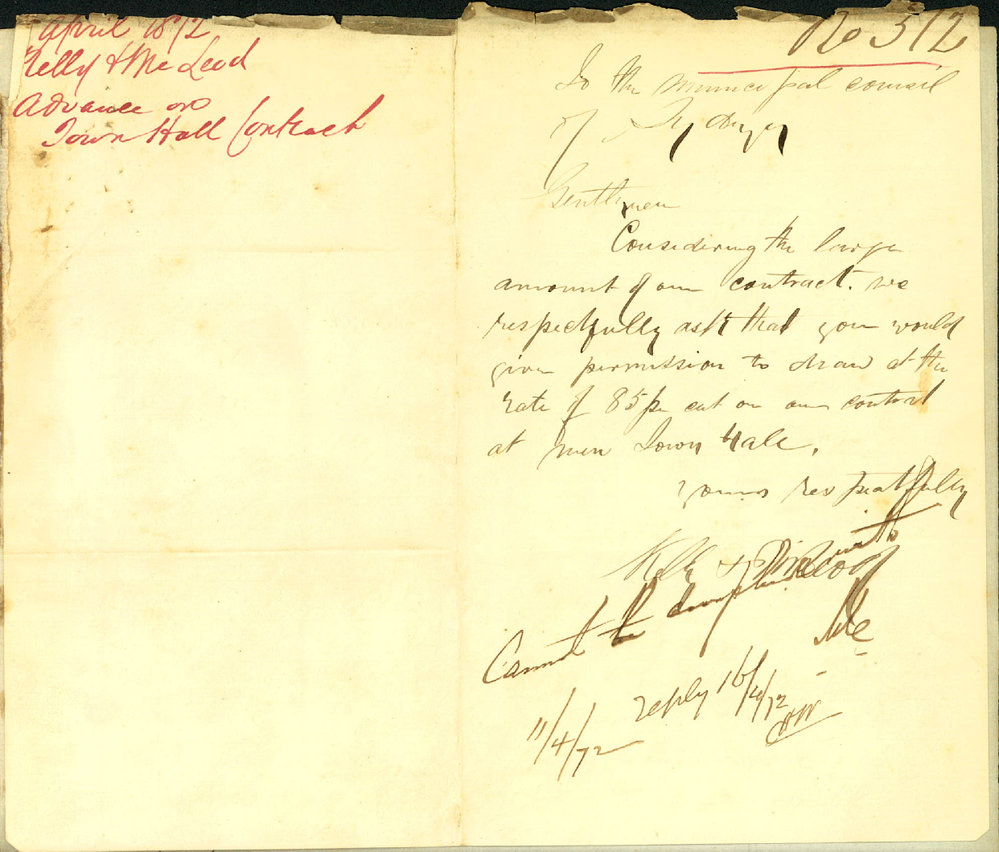 April 1872
Kelly & McLeod
Advance on
Town Hall Contract
No 512
To the municipal council
of Sydney
Gentlmen
Considering the large
amount of our contract. we
respectfully ask that you would
given permission to draw at the
rate of 85 per cent on our contract
at new Town Hall.
yours respectfully
Kelly & McLeod
Cannot be complied with
11/4/72
reply 16/4/72